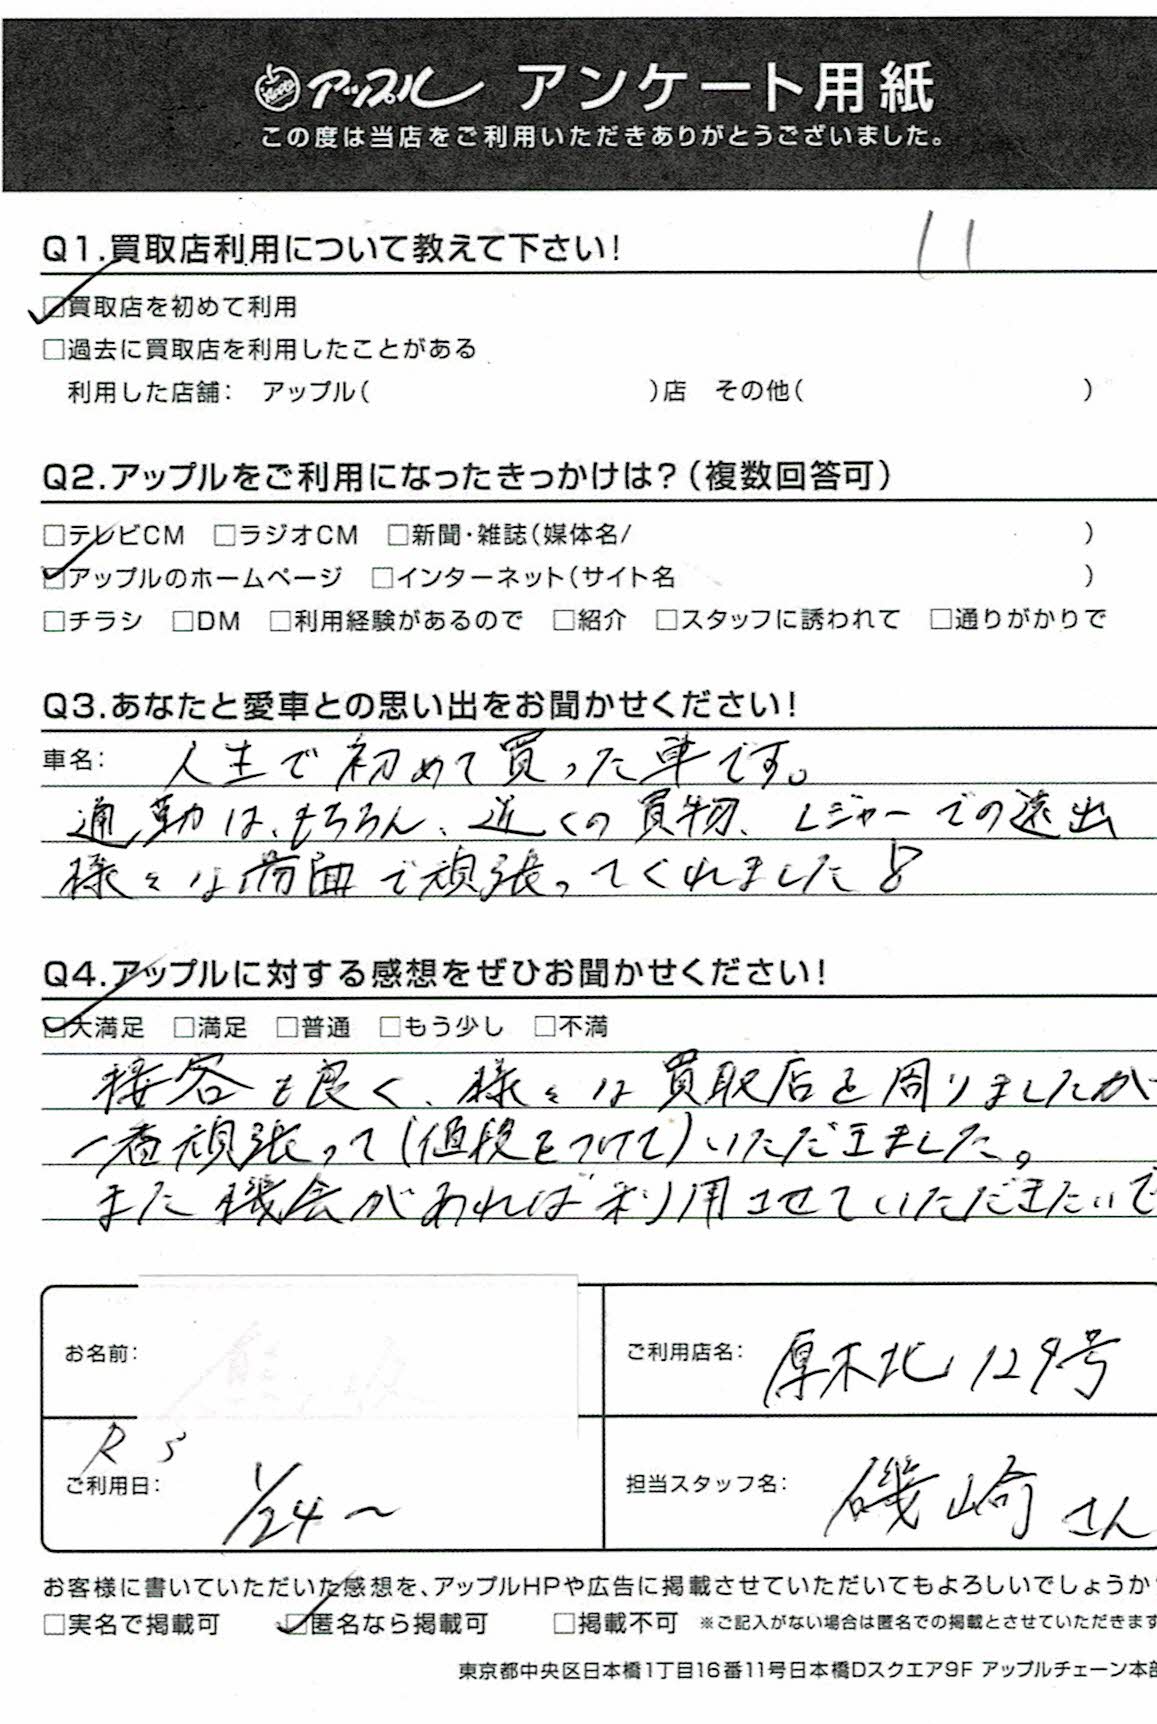 Apple アップル アンケート用紙
この度は当店をご利用いただきありがとうございました。
11
Q1.買取店利用について教えて下さい!
☑買取店を初めて利用
□過去に買取店を利用したことがある
利用した店舗: アップル( )店 その他( )
Q2.アップルをご利用になったきっかけは?(複数回答可)
□テレビCM □ラジオCM □新聞・雑誌(媒体名/ )
☑アップルのホームページ □インターネット(サイト名 )
□チラシ □DM □利用経験があるので □紹介 □スタッフに誘われて □通りがかりで
Q3.あなたと愛車との思い出をお聞かせください!
車名: 人生で初めて買った車です。
通勤は、もちろん、近くの買物、レジャーでの遠出
様々な場面で頑張ってくれました!
Q4.アップルに対する感想をぜひお聞かせください!
☑大満足 □満足 □普通 □もう少し □不満
接客も良く、様々な買取店を周りましたが
一番頑張って(値段をつけて)いただきました。
また機会があれば利用させていただきたいで
お名前:
ご利用店名: 厚木北129号
R5
ご利用日: 1/24〜
担当スタッフ名: 磯崎さん
お客様に書いていただいた感想を、アップルHPや広告に掲載させていただいてもよろしいでしょうか?
□実名で掲載可 ☑匿名なら掲載可 □掲載不可 ※ご記入がない場合は匿名での掲載とさせていただきます
東京都中央区日本橋1丁目16番11号日本橋Dスクエア9F アップルチェーン本部